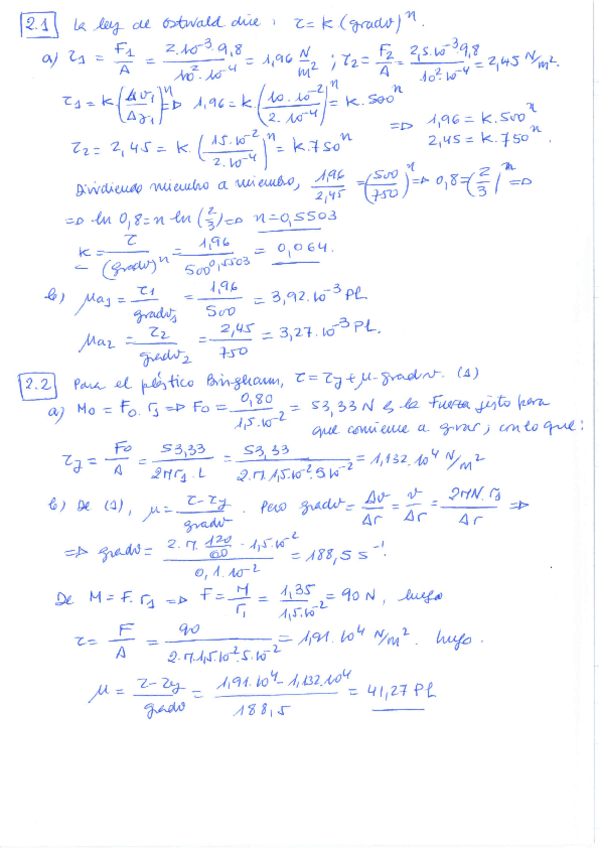 2.1 La ley de Ostwald dice: τ = k (gradv)ⁿ.
a) τ₁ = F₁/A = 2·10⁻³·9,8/10²·10⁻⁴ = 1,96 N/m² ; τ₂ = F₂/A = 2,5·10⁻³·9,8/10²·10⁻⁴ = 2,45 N/m².
τ₁ = k(Δv₁/Δy₁)ⁿ ⇒ 1,96 = k·(10·10⁻²/2·10⁻⁴)ⁿ = k·500ⁿ
τ₂ = 2,45 = k·(15·10⁻²/2·10⁻⁴)ⁿ = k·750ⁿ ⇒ 1,96 = k·500ⁿ
2,45 = k·750ⁿ.
Dividiendo miembro a miembro, 1,96/2,45 = (500/750)ⁿ ⇒ 0,8 = (2/3)ⁿ ⇒
⇒ ln 0,8 = n ln (2/3) ⇒ n = 0,5503
k = τ/(gradv)ⁿ = 1,96/500^0,5503 = 0,064.
b) μa₁ = τ₁/gradv₁ = 1,96/500 = 3,92·10⁻³ Pl
μa₂ = τ₂/gradv₂ = 2,45/750 = 3,27·10⁻³ Pl.
2.2 Para el plástico Bingham, τ = τy + μ·gradv. (1)
a) M₀ = F₀·r₁ ⇒ F₀ = 0,80/1,5·10⁻² = 53,33 N es la fuerza justo para
que comience a girar, con lo que:
τy = F₀/A = 53,33/2πr₁·L = 53,33/2·π·1,5·10⁻²·5·10⁻² = 1,132·10⁴ N/m²
b) De (1), μ = τ-τy/gradv. Pero gradv = Δv/Δr = v/Δr = 2πN·r₁/Δr ⇒
⇒ gradv = 2·π·120/60·1,5·10⁻²/0,1·10⁻² = 188,5 s⁻¹.
De M = F·r₁ ⇒ F = M/r₁ = 1,35/1,5·10⁻² = 90 N, luego
τ = F/A = 90/2·π·1,5·10⁻²·5·10⁻² = 1,91·10⁴ N/m². luego.
μ = τ-τy/gradv = 1,91·10⁴-1,132·10⁴/188,5 = 41,27 Pl